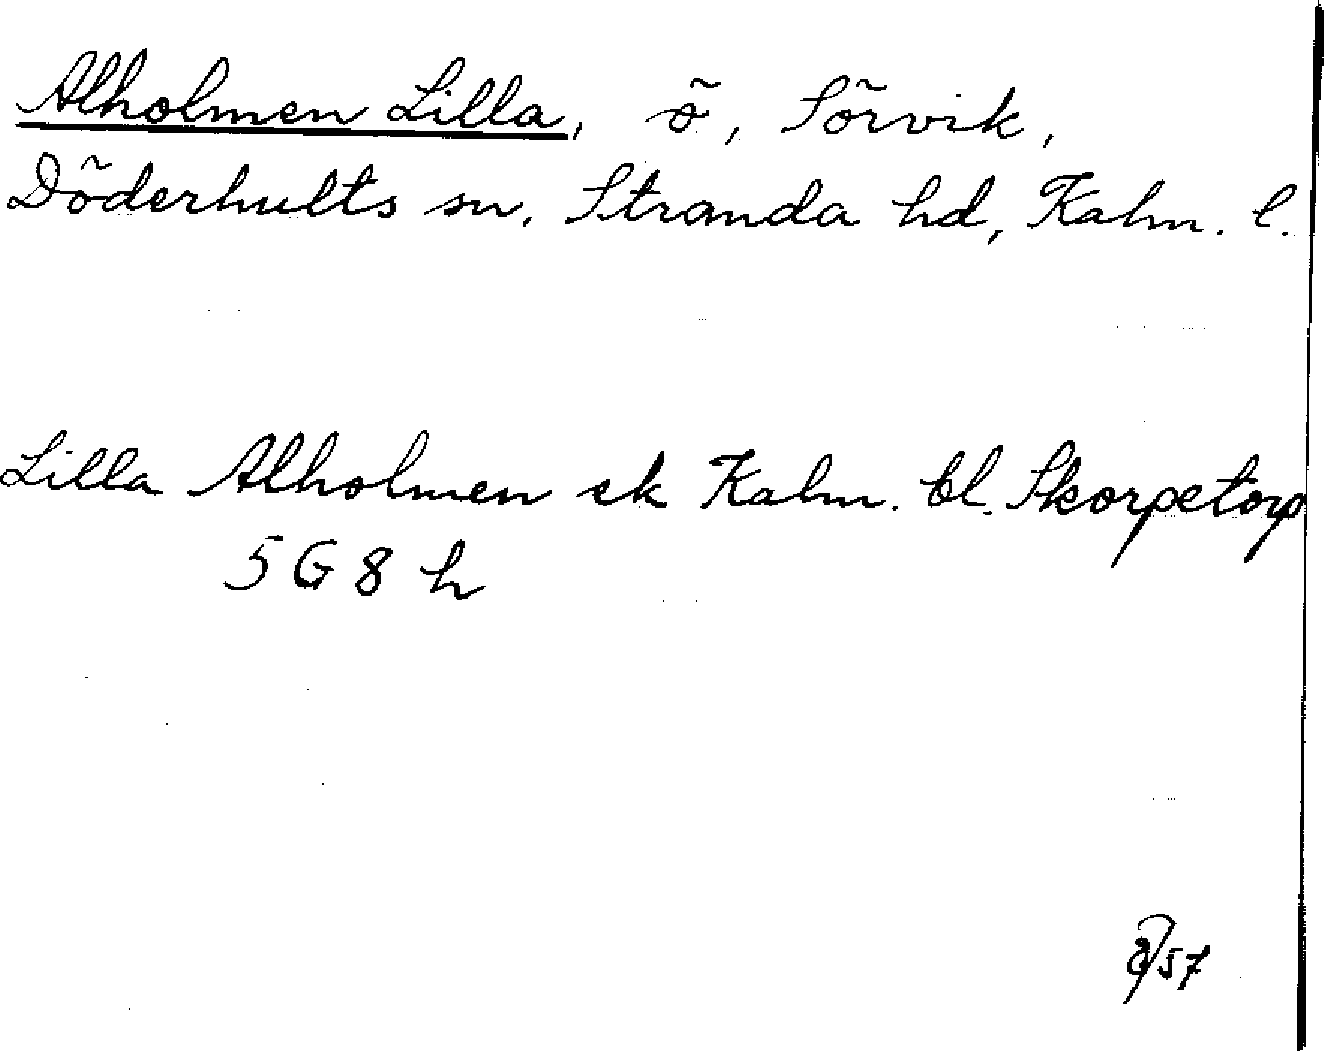 Alholmen Lilla, ö, Sörvik,
Döderhults sn, Stranda hd, Kalm. l.
Lilla Alholmen ek Kalm. bl. Skorpetorp
5 G 8 h
57